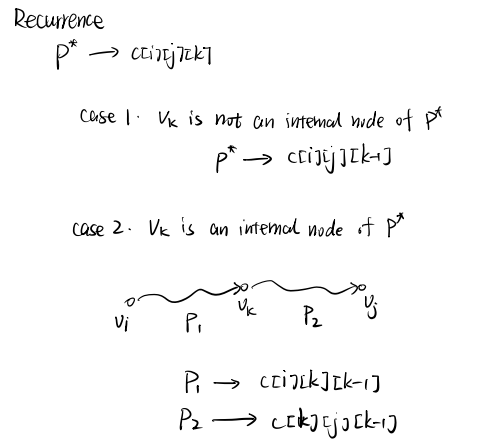 Recurrence
P* → c[i][j][k]
case 1. Vk is not an internal node of P*
P* → c[i][j][k-1]
case 2. Vk is an internal node of P*
Vi P1 Vk P2 Vj
P1 → c[i][k][k-1]
P2 → c[k][j][k-1]